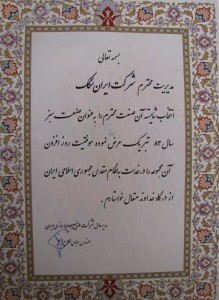 بسمه تعالی
مدیریت محترم شرکت ایران محک
انتخاب شایسته آن صنعت محترم را به عنوان صنعت سبز
سال ۸۳ تبریک عرض نموده موفقیت روز افزون
آن مجموعه را در خدمت به نظام مقدس جمهوری اسلامی ایران
از درگاه خداوند متعال خواستارم.
مدیر عامل شرکت ایران
مهندس عباس